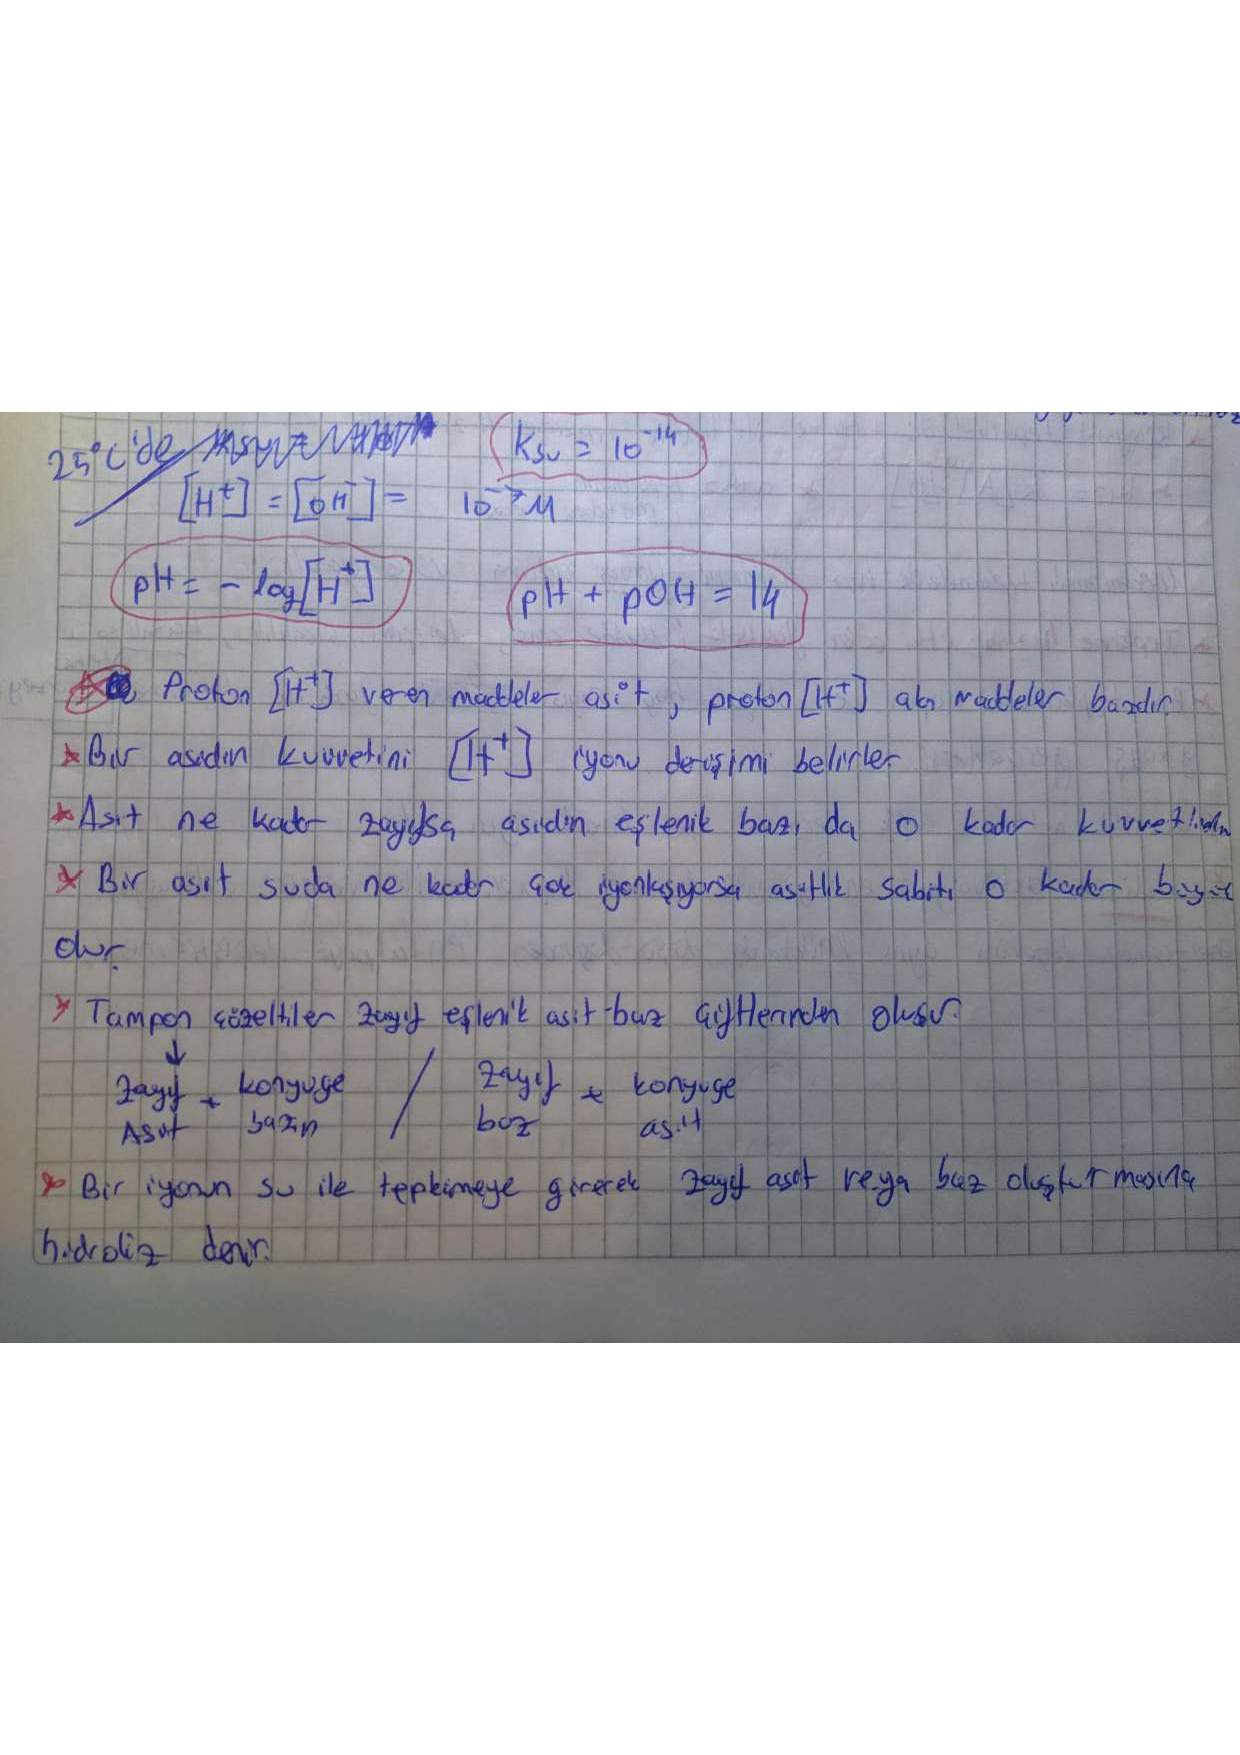 25°C'de Ksu = 10⁻¹⁴
[H⁺] = [OH⁻] = 10⁻⁷ M
pH = - log[H⁺] pH + pOH = 14
Proton [H⁺] veren maddeler asit, proton [H⁺] alan maddeler bazdır.
* Bir asidin kuvvetini [H⁺] iyonu derişimi belirler
* Asit ne kadar zayıfsa asidin eşlenik bazı da o kadar kuvvetlidir
* Bir asit suda ne kadar çok iyonlaşıyorsa asitlik sabiti o kadar büyük
olur.
* Tampon çözeltiler zayıf eşlenik asit-baz çiftlerinden oluşur.
↓
Zayıf + konyuge / Zayıf + konyuge
Asit bazın baz asit
* Bir iyonun su ile tepkimeye girerek zayıf asit veya baz oluşturmasına
hidroliz denir.